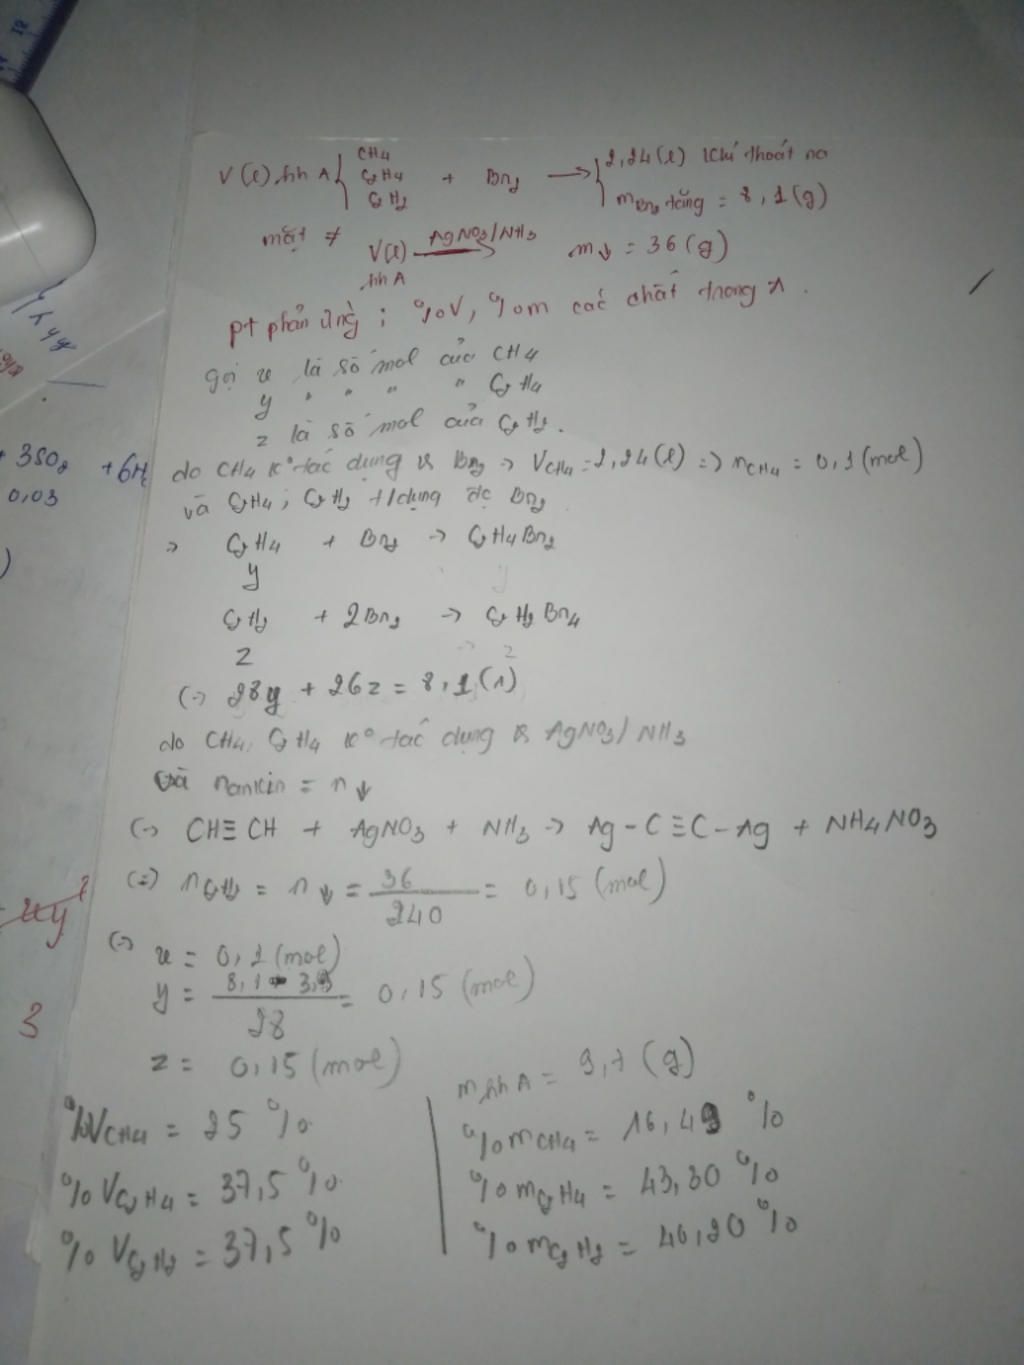 V(l) hh A { CH4 C2H4 C2H2 + Br2 → { 2,24(l) khí thoát ra
mBr2 tăng = 8,1(g)
mặt ≠ V(l) hh A AgNO3/NH3 → m↓ = 36(g)
pt phản ứng ; %V, %m các chất trong A.
gọi x là số mol của CH4
y " " " " C2H4
z là số mol của C2H2.
+ 3SO2 + 6H2
0,03
do CH4 k° tác dụng vs Br2 → VCH4 = 2,24(l) => nCH4 = 0,1(mol)
và C2H4; C2H2 t/dụng đc Br2
=> C2H4 + Br2 → C2H4Br2
y y
C2H2 + 2Br2 → C2H2Br4
z → z
(→ 28y + 26z = 8,1(1)
do CH4, C2H4 k° tác dụng vs AgNO3/NH3
và nankin = n↓
(→ CH≡CH + AgNO3 + NH3 → Ag-C≡C-Ag + NH4NO3
(=) nC2H2 = n↓ = 36/240 = 0,15(mol)
(→ x = 0,1(mol)
y = 8,1 - 3,9/28 = 0,15(mol)
z = 0,15(mol)
3
mhh A = 9,7(g)
%VCH4 = 25%
%VC2H4 = 37,5%
%VC2H2 = 37,5%
%mCH4 = 16,49%
%mC2H4 = 43,30%
%mC2H2 = 40,20%